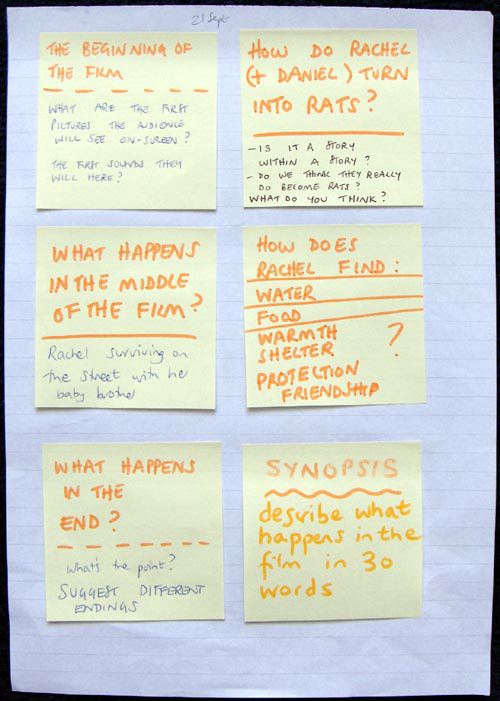 21 Sept
THE BEGINNING OF
THE FILM
WHAT ARE THE FIRST
PICTURES THE AUDIENCE
WILL SEE ON-SCREEN?
THE FIRST SOUNDS THEY
WILL HERE?
HOW DO RACHEL
(+ DANIEL) TURN
INTO RATS?
- IS IT A STORY
WITHIN A STORY?
- DO WE THINK THEY REALLY
DO BECOME RATS?
WHAT DO YOU THINK?
WHAT HAPPENS
IN THE MIDDLE
OF THE FILM?
Rachel surviving on
the street with her
baby brother
HOW DOES
RACHEL FIND:
WATER
FOOD
WARMTH
SHELTER ?
PROTECTION
FRIENDSHIP
WHAT HAPPENS
IN THE
END?
what's the point?
SUGGEST DIFFERENT
ENDINGS
SYNOPSIS
describe what
happens in the
film in 30
words